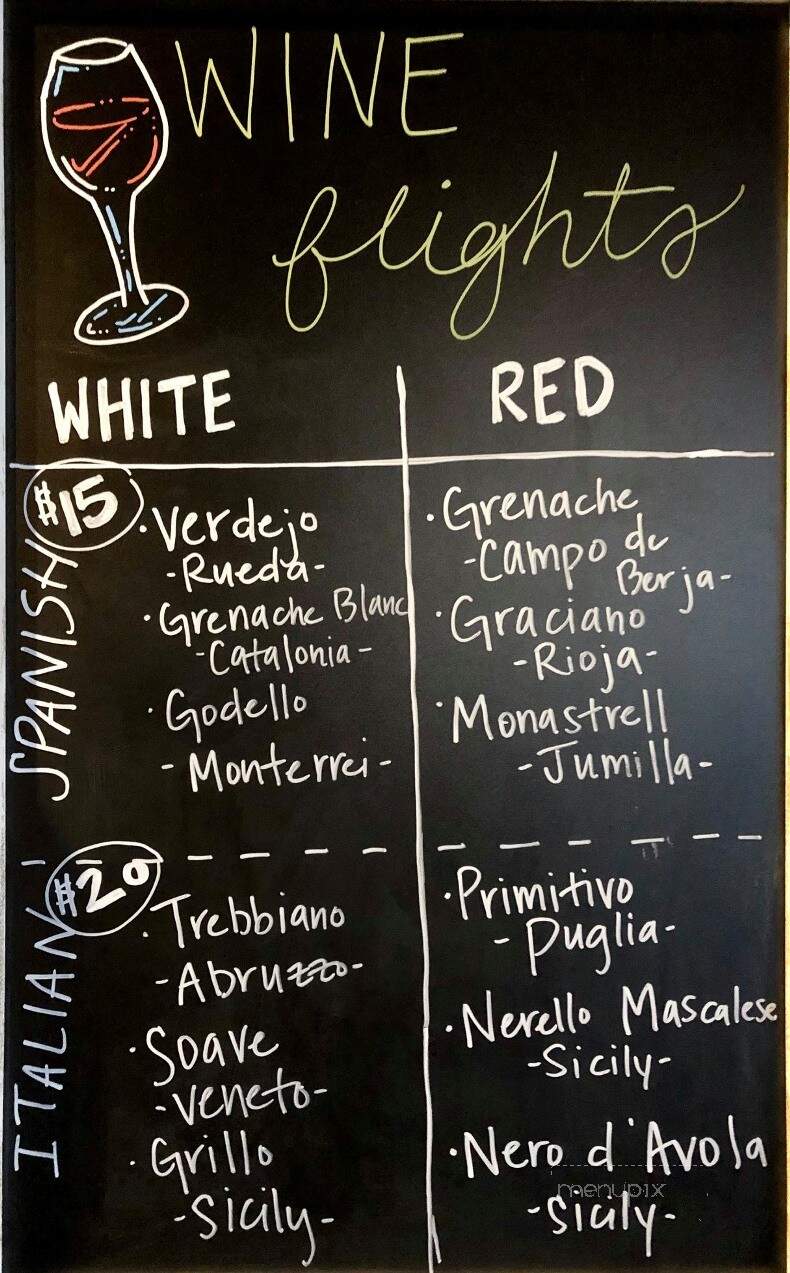 WINE
flights
WHITE
RED
SPANISH
$15
· Verdejo
-Rueda-
· Grenache Blanc
-Catalonia-
· Godello
-Monterrei-
· Grenache
-Campo de
Borja-
· Graciano
-Rioja-
· Monastrell
-Jumilla-
ITALIAN
$20
· Trebbiano
-Abruzzo-
· Soave
-Veneto-
· Grillo
-Sicily-
· Primitivo
-Puglia-
· Nerello Mascalese
-Sicily-
· Nero d'Avola
-Sicily-
menupix